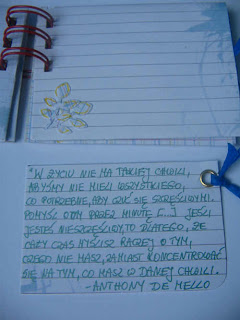 "W ŻYCIU NIE MA TAKIEJ CHWILI,
ABYŚMY NIE MIELI WSZYSTKIEGO,
CO POTRZEBNE, ABY CZUĆ SIĘ SZCZĘŚLIWYMI.
POMYŚL O TYM PRZEZ MINUTĘ [...] JEŚLI
JESTEŚ NIESZCZĘŚLIWY, TO DLATEGO, ŻE
CAŁY CZAS MYŚLISZ RACZEJ O TYM,
CZEGO NIE MASZ, ZAMIAST KONCENTROWAĆ
SIĘ NA TYM, CO MASZ W DANEJ CHWILI.
-ANTHONY DE MELLO